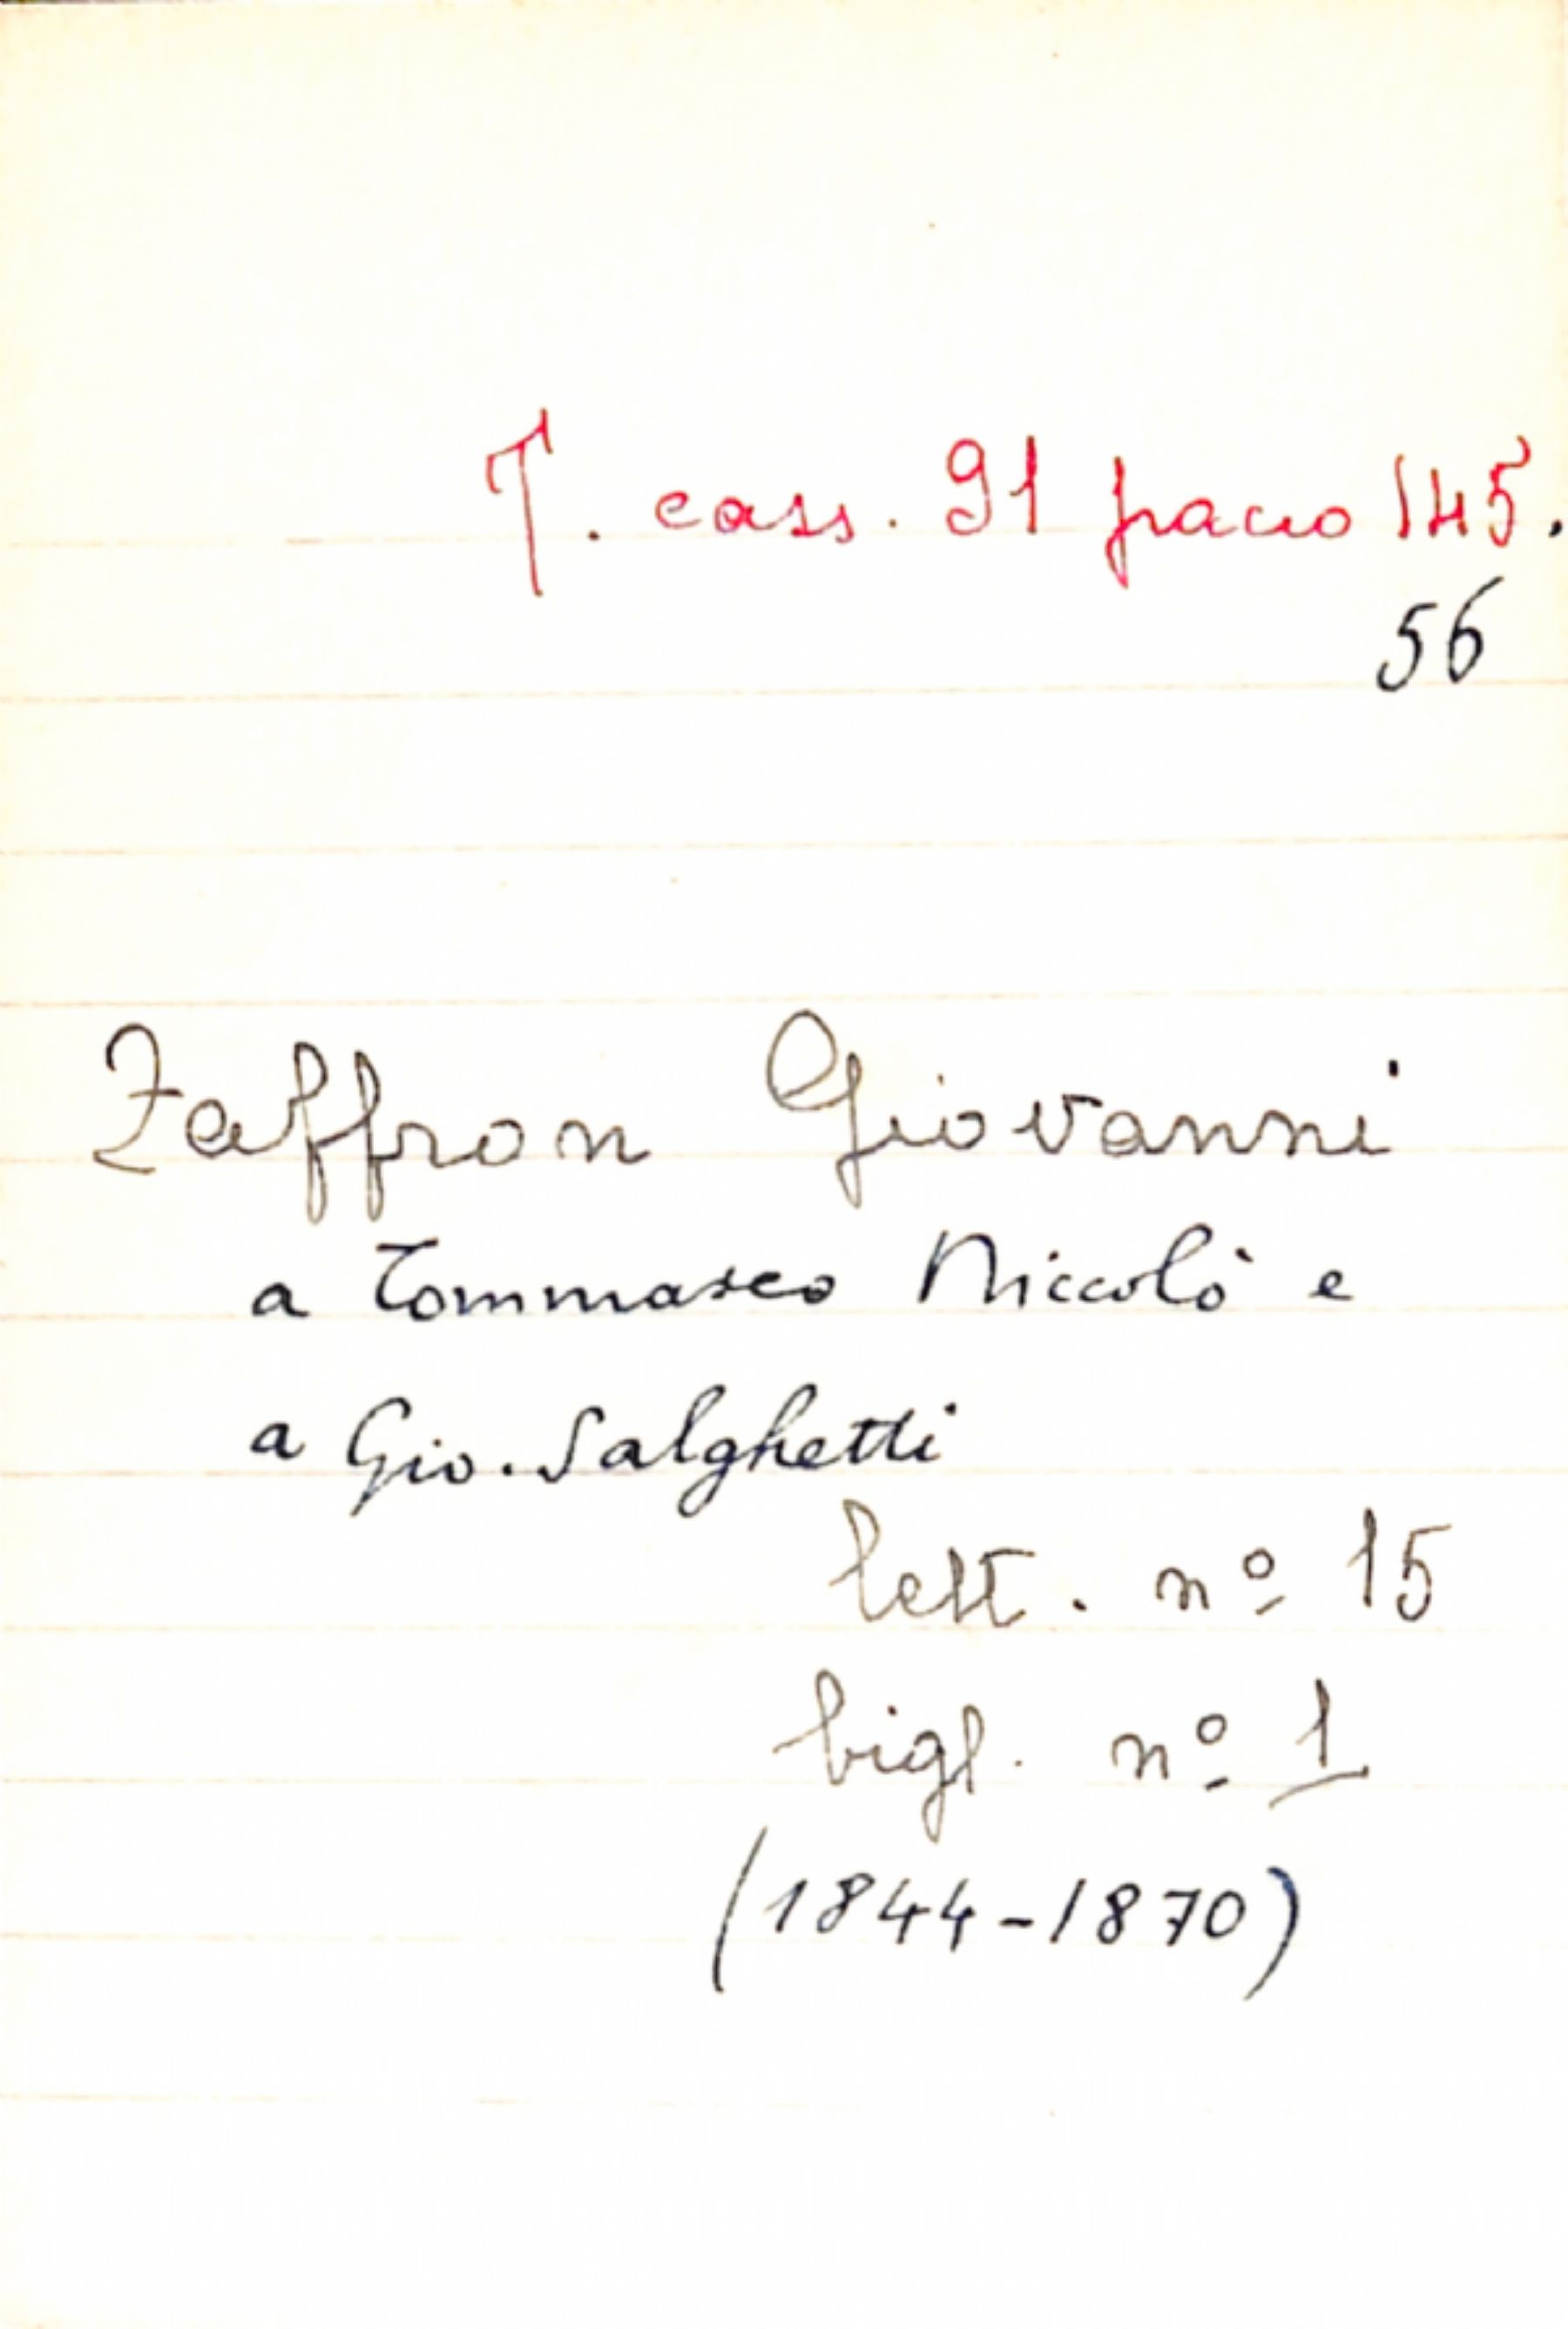 T. cass. 91 pacco 145.
56
Zaffron Giovanni
a Tommaseo Niccolò e
a Gio. Salghetti
lett. nº 15
bigl. nº 1
(1844-1870)